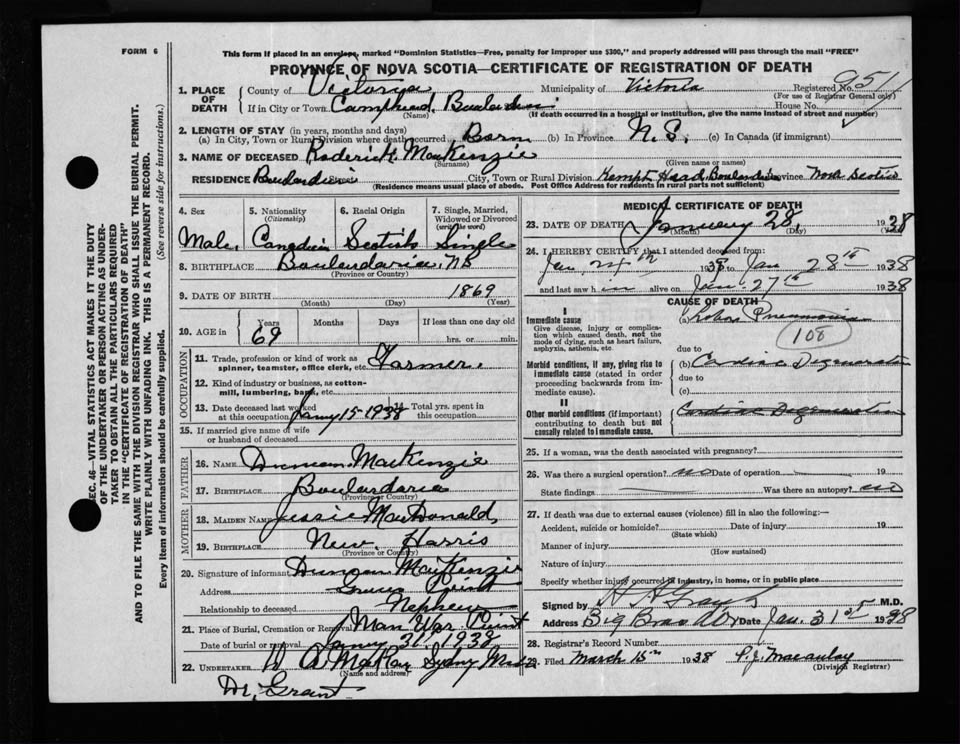 FORM 6
This form if placed in an envelope, marked "Dominion Statistics—Free, penalty for improper use $300," and properly addressed will pass through the mail "FREE"
PROVINCE OF NOVA SCOTIA—CERTIFICATE OF REGISTRATION OF DEATH
1. PLACE OF DEATH
County of Victoria Municipality of Victoria Registered No. 951
(For use of Registrar General only)
If in City or Town Boulardarie House No.
(Name) (If death occurred in a hospital or institution, give the name instead of street and number)
2. LENGTH OF STAY (in years, months and days)
(a) In City, Town or Rural Division where death occurred Born (b) In Province N.S. (c) In Canada (if immigrant)
3. NAME OF DECEASED Roderick MacKenzie
(Surname) (Given name or names)
RESIDENCE Boulardarie City, Town or Rural Division Kempt Head, Boulardarie Province Nova Scotia
(Residence means usual place of abode. Post Office Address for residents in rural parts not sufficient)
4. Sex
Male
5. Nationality (Citizenship)
Canadian
6. Racial Origin
Scotish
7. Single, Married, Widowed or Divorced (write the word)
Single
8. BIRTHPLACE Boulardarie, NS
(Province or Country)
9. DATE OF BIRTH 1869
(Month) (Day) (Year)
10. AGE in
Years Months Days If less than one day old
69 hrs. or min.
OCCUPATION
11. Trade, profession or kind of work as spinner, teamster, office clerk, etc. Farmer.
12. Kind of industry or business, as cotton-mill, lumbering, bank, etc.
13. Date deceased last worked at this occupation Jany 15-1938 Total yrs. spent in this occupation
15. If married give name of wife or husband of deceased
FATHER
16. NAME Duncan MacKenzie
17. BIRTHPLACE Boulardarie
(Province or Country)
MOTHER
18. MAIDEN NAME Jessie MacDonald
19. BIRTHPLACE New Harris
(Province or Country)
20. Signature of informant Duncan MacKenzie
Address Point
Relationship to deceased Nephew
21. Place of Burial, Cremation or Removal Man War Point
Date of burial or removal Jany 31st 1938
22. UNDERTAKER A MacKay Sydny Mines
(Name and address)
Dr. Grant
MEDICAL CERTIFICATE OF DEATH
23. DATE OF DEATH January 28, 1938
(Month) (Day) (Year)
24. I HEREBY CERTIFY that I attended deceased from:
Jan 1938 to Jan 28th 1938
and last saw him alive on Jan 27th 1938
CAUSE OF DEATH
I
Immediate cause
Give disease, injury or complication which caused death, not the mode of dying, such as heart failure, asphyxia, asthenia, etc.
(a) Lobar Pneumonia
108
due to
Morbid conditions, if any, giving rise to immediate cause (stated in order proceeding backwards from immediate cause).
(b) Cardiac Degeneration
due to
(c)
II
Other morbid conditions (if important) contributing to death but not causally related to immediate cause.
Cardiac Degeneration
25. If a woman, was the death associated with pregnancy?
26. Was there a surgical operation? no Date of operation 19
State findings Was there an autopsy? no
27. If death was due to external causes (violence) fill in also the following:—
Accident, suicide or homicide? Date of injury 19
(State which)
Manner of injury
(How sustained)
Nature of injury
Specify whether injury occurred in industry, in home, or in public place
Signed by Grant M.D.
Address Big Bras d'Or Date Jan. 31st 1938
28. Registrar's Record Number
29. Filed March 15th 1938 P.J. Macaulay
(Division Registrar)
SEC. 46—VITAL STATISTICS ACT MAKES IT THE DUTY
OF THE UNDERTAKER OR PERSON ACTING AS UNDER-
TAKER TO OBTAIN ALL THE PARTICULARS REQUIRED
IN THE "CERTIFICATE OF REGISTRATION OF DEATH"
AND TO FILE THE SAME WITH THE DIVISION REGISTRAR WHO SHALL ISSUE THE BURIAL PERMIT.
WRITE PLAINLY WITH UNFADING INK. THIS IS A PERMANENT RECORD.
Every item of information should be carefully supplied. (See reverse side for instructions.)